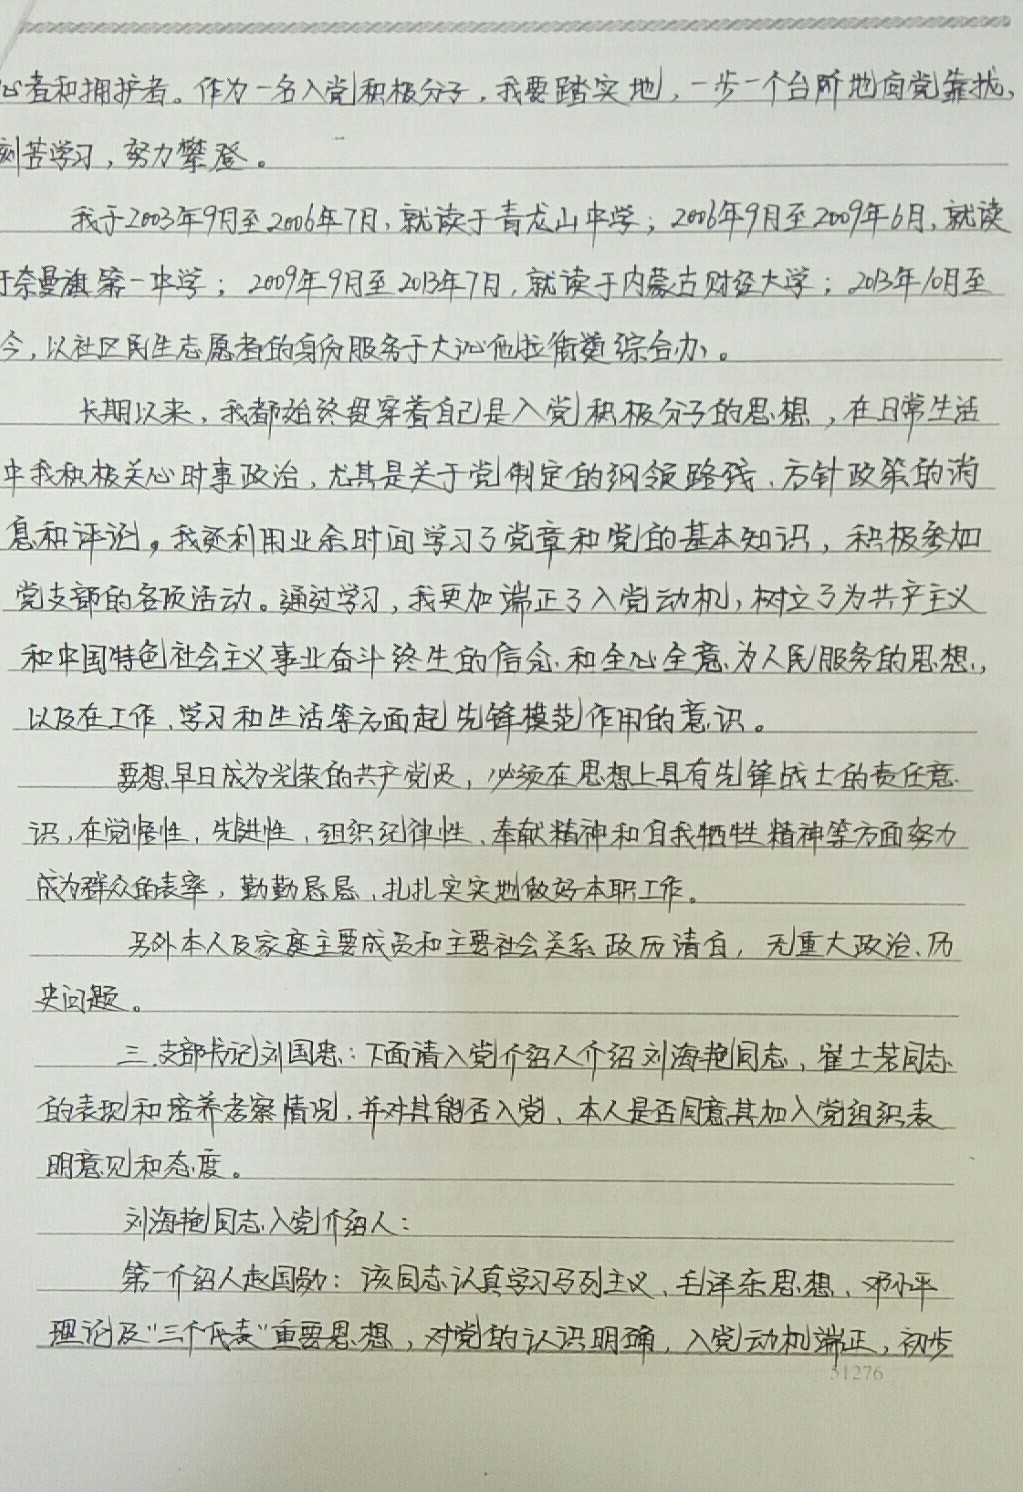 心者和拥护者。作为一名入党积极分子，我要踏实地，一步一个台阶地向党靠拢，
刻苦学习，努力攀登。
我于2003年9月至2006年7月，就读于青龙山中学；2006年9月至2009年6月，就读
于奈曼旗第一中学；2009年9月至2013年7月，就读于内蒙古财经大学；2013年10月至
今，以社区民生志愿者的身份服务于大沁他拉街道综合办。
长期以来，我都始终贯穿着自己是入党积极分子的思想，在日常生活
中我积极关心时事政治，尤其是关于党制定的纲领路线、方针政策的消
息和评论，我还利用业余时间学习了党章和党的基本知识，积极参加
党支部的各项活动。通过学习，我更加端正了入党动机，树立了为共产主义
和中国特色社会主义事业奋斗终生的信念、和全心全意为人民服务的思想，
以及在工作、学习和生活等方面起先锋模范作用的意识。
要想早日成为光荣的共产党员，必须在思想上具有先锋战士的责任意
识，在党性、先进性、组织纪律性、奉献精神和自我牺牲精神等方面努力
成为群众的表率，勤勤恳恳、扎扎实实地做好本职工作。
另外本人及家庭主要成员和主要社会关系政历清白，无重大政治、历
史问题。
三、支部书记刘国忠：下面请入党介绍人介绍刘海艳同志，崔士若同志
的表现和培养考察情况，并对其能否入党、本人是否同意其加入党组织表
明意见和态度。
刘海艳同志入党介绍人：
第一介绍人赵国勋：该同志认真学习马列主义、毛泽东思想、邓小平
理论及“三个代表”重要思想，对党的认识明确，入党动机端正，初步
51276